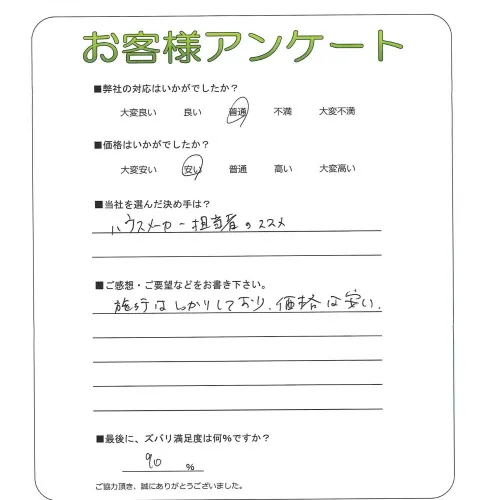 お客様アンケート
■弊社の対応はいかがでしたか？
大変良い 良い 普通 不満 大変不満
■価格はいかがでしたか？
大変安い 安い 普通 高い 大変高い
■当社を選んだ決め手は？
ハウスメーカー担当者のススメ
■ご感想・ご要望などをお書き下さい。
施行はしかりしており、価格は安い.
■最後に、ズバリ満足度は何%ですか？
90 %
ご協力頂き、誠にありがとうございました。